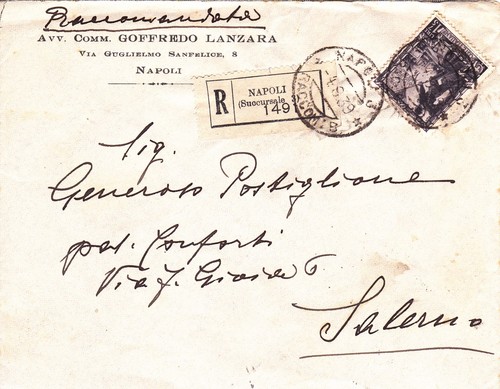 Raccomandata
AVV. COMM. GOFFREDO LANZARA
VIA GUGLIELMO SANFELICE, 8
NAPOLI
R
NAPOLI
(Succursale
149
NAPOLI
Sig.
Generoso Postiglione
pal. Conforti
Via F. Gioia 6
Salerno